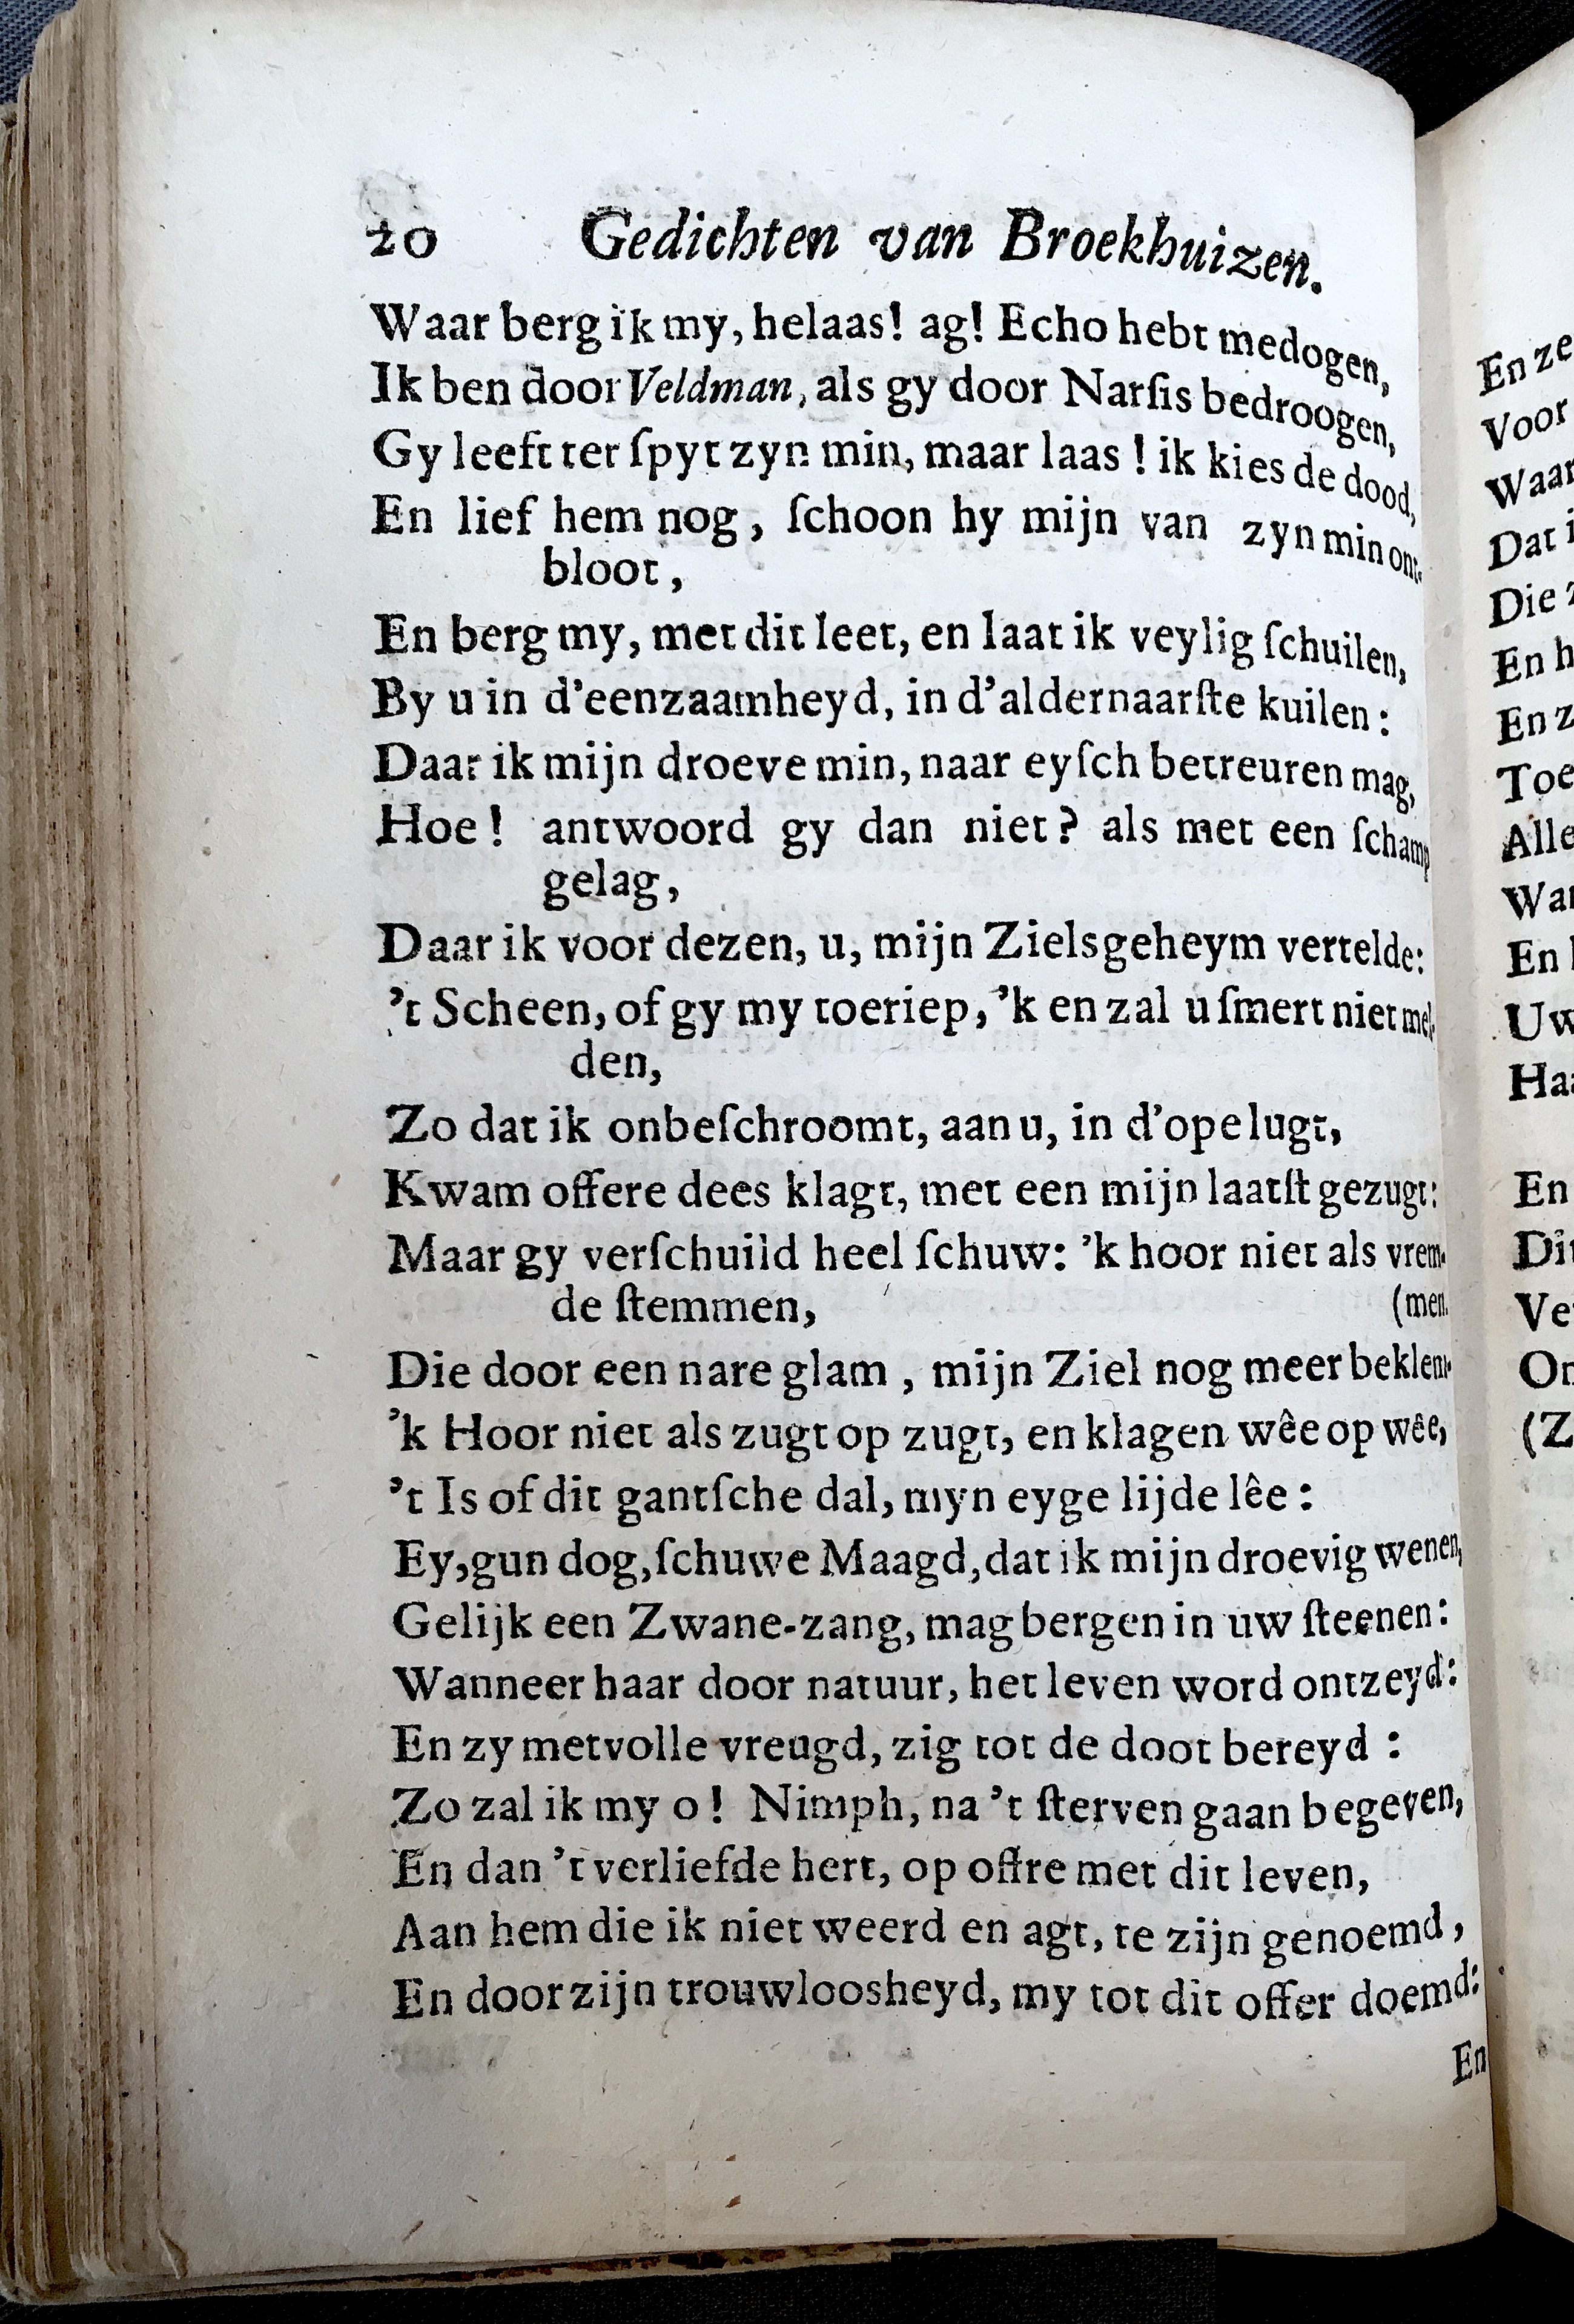 20 Gedichten van Broekhuizen.
Waar berg ik my, helaas! ag! Echo hebt medogen,
Ik ben door Veldman, als gy door Narſis bedroogen,
Gy leeft ter ſpyt zyn min, maar laas! ik kies de dood,
En lief hem nog, ſchoon hy mijn van zyn min ont-
bloot,
En berg my, met dit leet, en laat ik veylig ſchuilen,
By u in d'eenzaamheyd, in d'aldernaarſte kuilen:
Daar ik mijn droeve min, naar eyſch betreuren mag,
Hoe! antwoord gy dan niet? als met een ſchamp
gelag,
Daar ik voor dezen, u, mijn Zielsgeheym vertelde:
't Scheen, of gy my toeriep, 'k en zal u ſmert niet mel-
den,
Zo dat ik onbeſchroomt, aan u, in d'ope lugt,
Kwam offere dees klagt, met een mijn laatſt gezugt:
Maar gy verſchuild heel ſchuw: 'k hoor niet als vrem-
de ſtemmen, (men.
Die door een nare glam, mijn Ziel nog meer beklem-
'k Hoor niet als zugt op zugt, en klagen wêe op wêe,
't Is of dit gantſche dal, myn eyge lijde lêe:
Ey, gun dog, ſchuwe Maagd, dat ik mijn droevig wenen,
Gelijk een Zwane-zang, mag bergen in uw ſteenen:
Wanneer haar door natuur, het leven word ontzeyd:
En zy met volle vreugd, zig tot de doot bereyd:
Zo zal ik my o! Nimph, na 't ſterven gaan begeven,
En dan 't verliefde hert, op offre met dit leven,
Aan hem die ik niet weerd en agt, te zijn genoemd,
En door zijn trouwloosheyd, my tot dit offer doemd:
En
En ze
Voor
Waar
Dat i
Die z
En h
En z
Toe
Alle
Wa
En
Uw
Haa
En
Dit
Ve
On
(Z